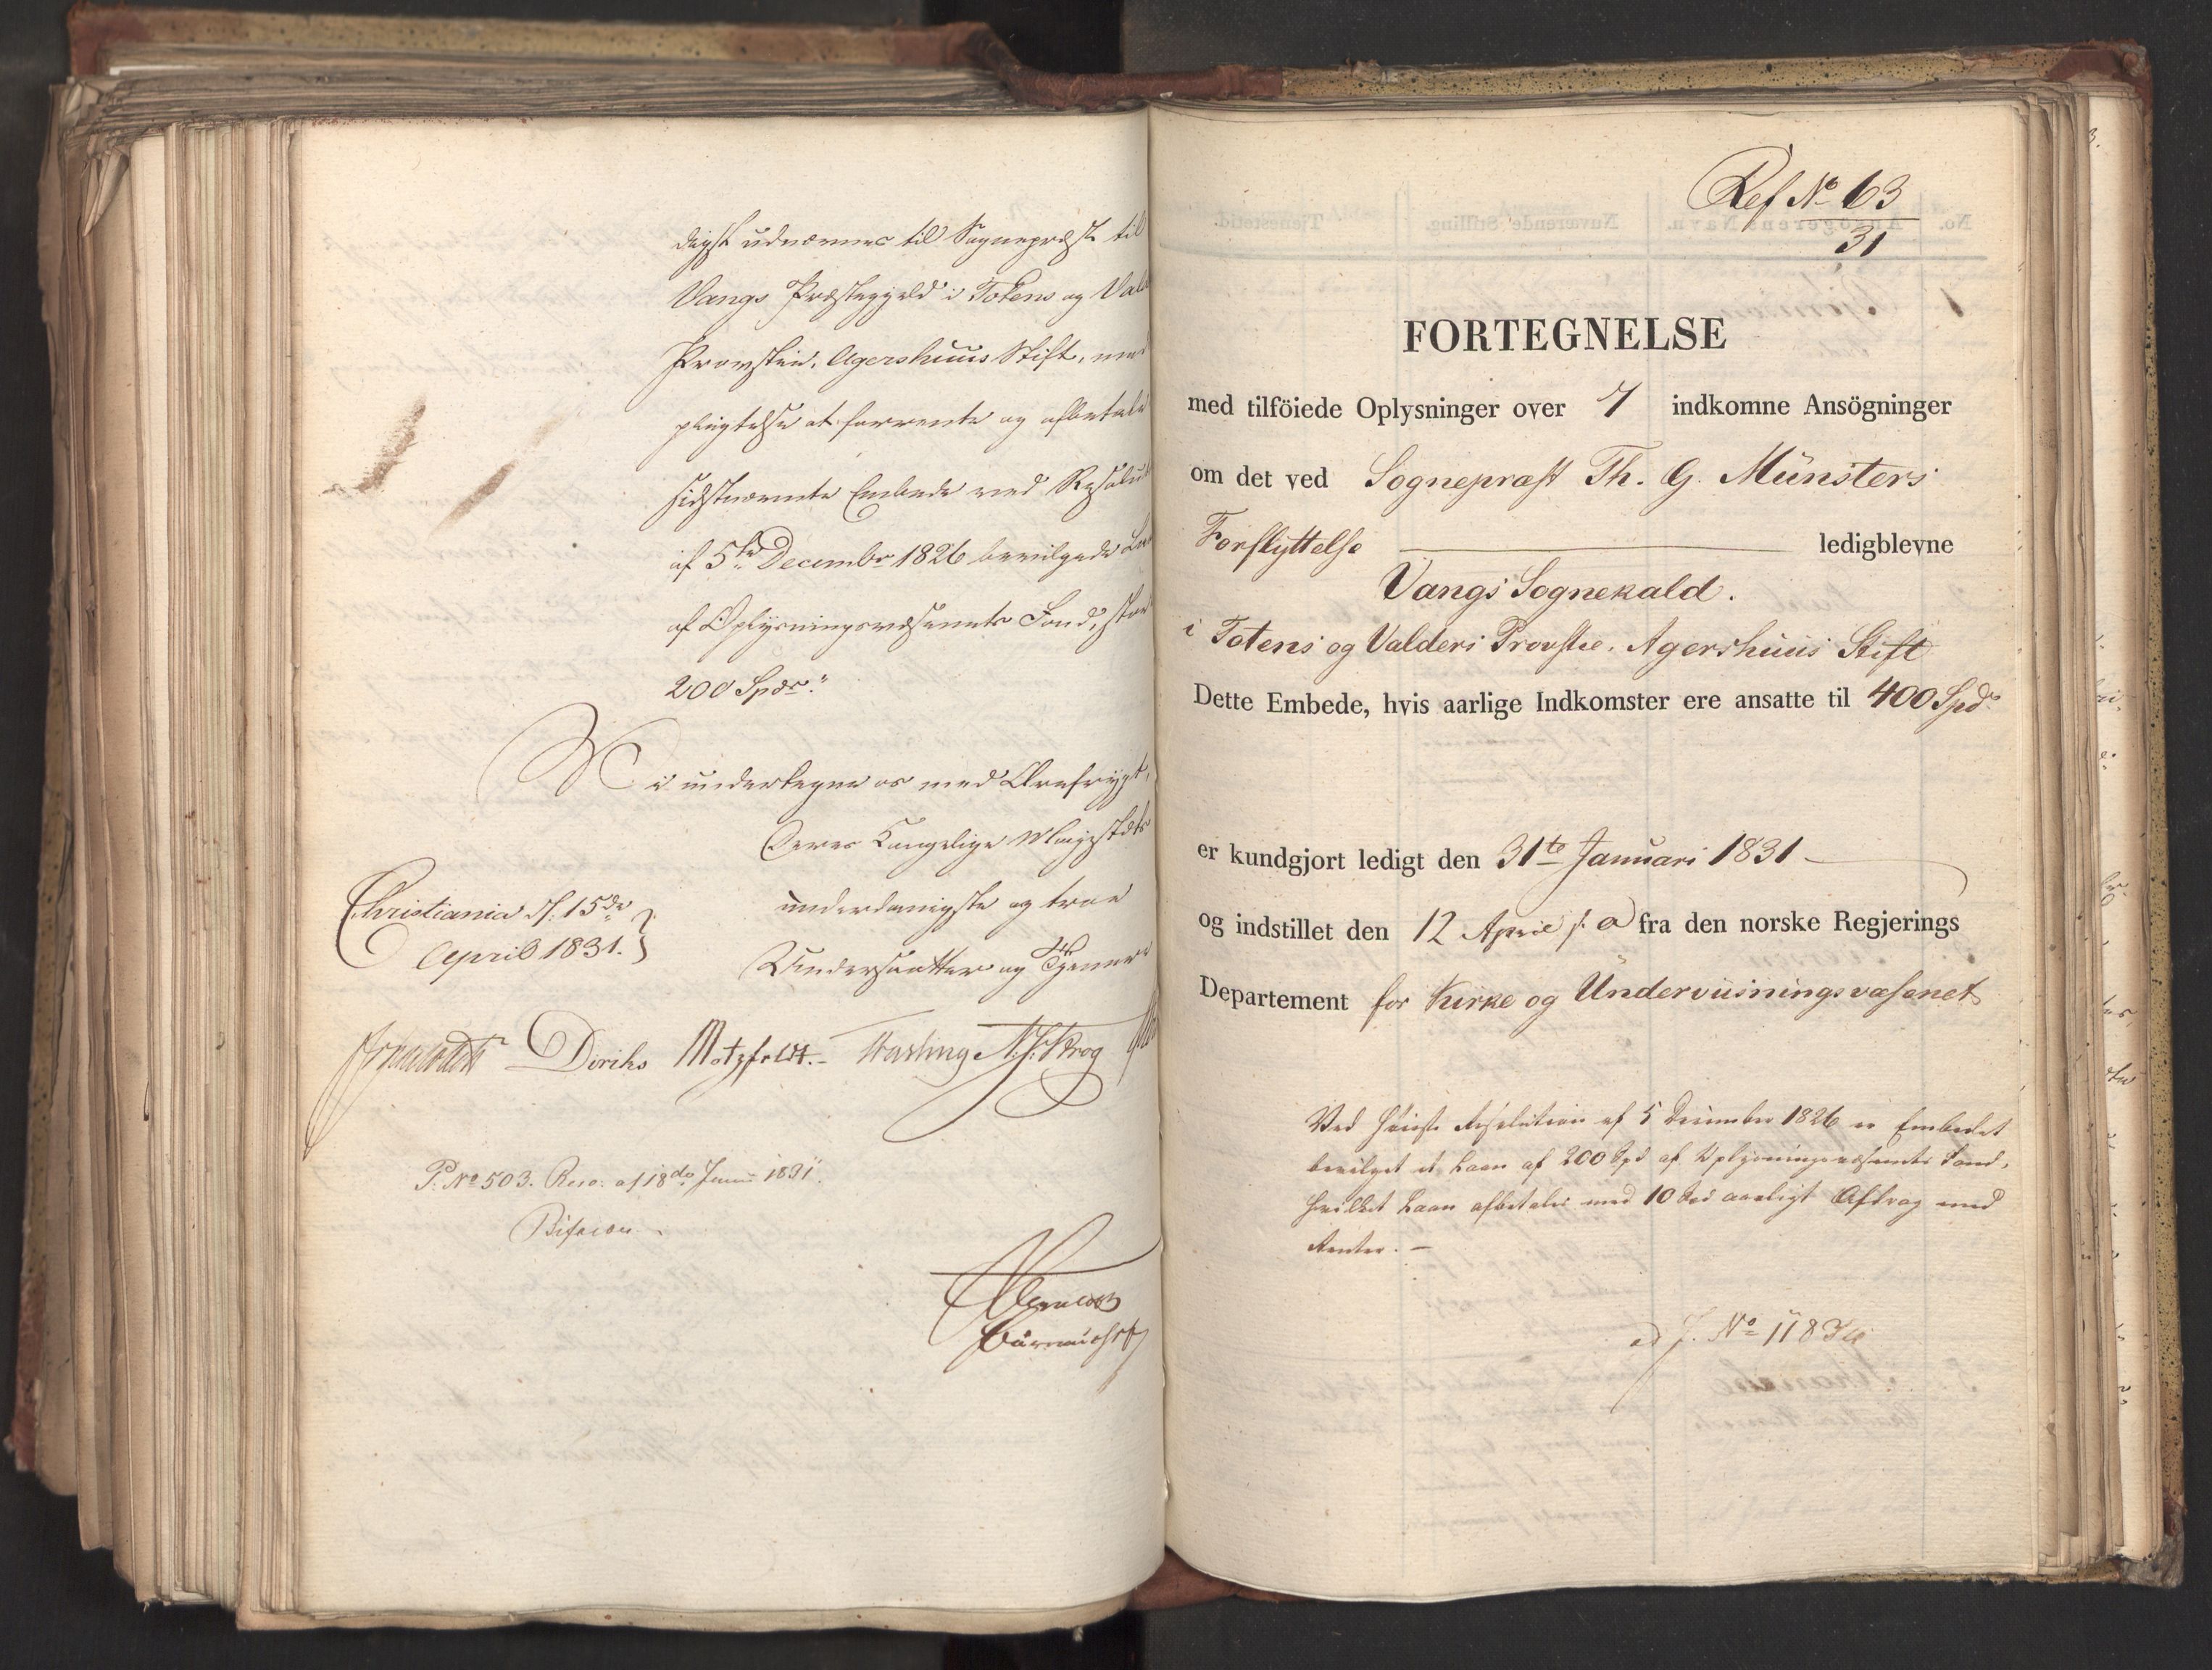 digst udnævnes til Sognepræst til
Vangs Præstegjeld i Totens og Vald
Provstie, Agershuus Stift, med
pligtelse at forrente og afbetale
sidstnævnte Embede ved Resolut
af 5te December 1826 bevilgede Laa
af Oplysningsvæsenets Fond, stor
200 Spdr."
Vi undertegne os med Ærefrygt,
Deres Kongelige Majestæts
underdanigste og troe
Undersaatter og Tjenere
Christiania d: 15de
April 1831.
Diriks Motzfeldt. Fasting N. J. Krog
P. No 503. Reso: af 18de 1831.
Ref No 63
31
FORTEGNELSE
med tilföiede Oplysninger over 7 indkomne Ansögninger
om det ved Sognepræst Th. G. Münsters
Forflyttelse ledigblevne
Vangs Sognekald.
i Totens og Valders Provstie. Agershuus Stift
Dette Embede, hvis aarlige Indkomster ere ansatte til 400 Spd
er kundgjort ledigt den 31te Januari 1831
og indstillet den 12 April s. a fra den norske Regjerings
Departement for Kirke og Underviisningsvæsenet
Ved høieste Resolution af 5 December 1826 er Embedet
bevilget et Laan af 200 Spd af Oplysningsvæsenets Fond,
hvilket Laan afbetales med 10 Spd aarligt Afdrag med
Renter. –
ad J. No